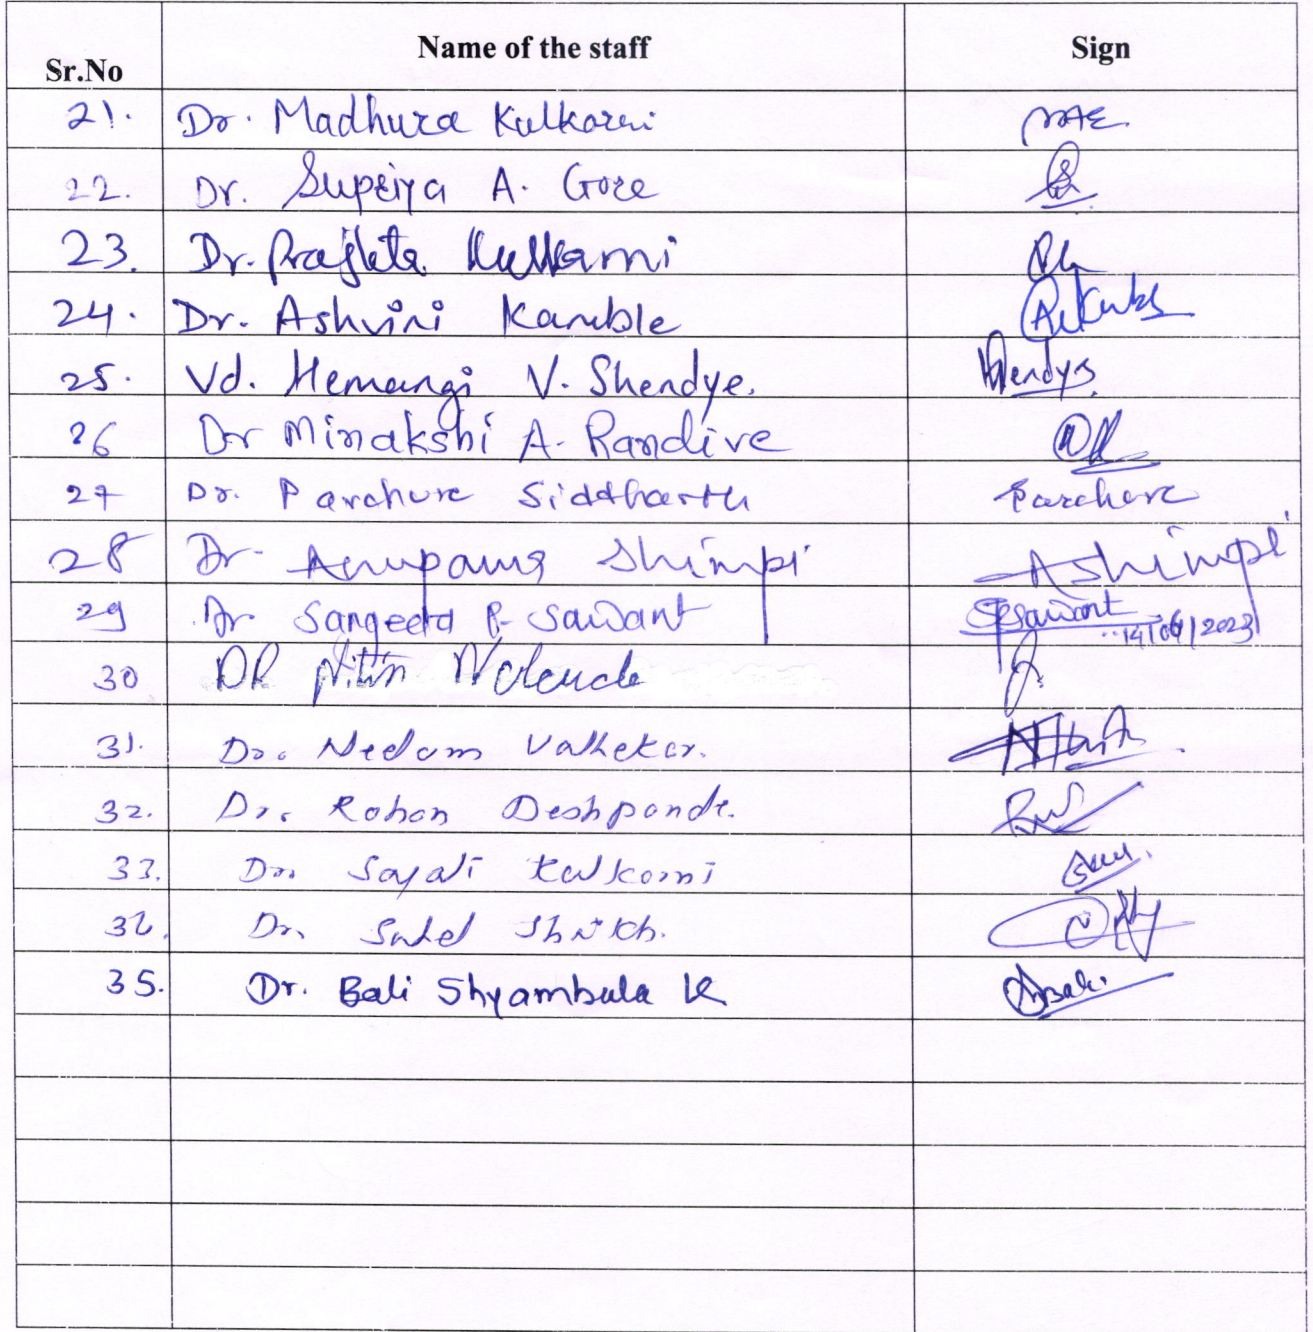 Sr.No Name of the staff Sign
21. Dr. Madhura Kulkarni
22. Dr. Supriya A. Gore
23. Dr. Prajkta Kulkarni
24. Dr. Ashvini Kamble
25. Vd. Hemangi V. Shendye. Shendye
26 Dr Minakshi A. Randive
27 Dr. Parchure Siddharth Parchure
28 Dr. Anupama Shimpi AShimpi
29 Dr. Sangeeta P. Sawant SPSawant
14/06/2023
30 DR Nitin
31. Dr. Neelam Valhekar.
32. Dr. Rohan Deshpande.
33. Dr. Sayali Kulkarni
34. Dr. Shaikh.
35. Dr. Bali Shyambala K